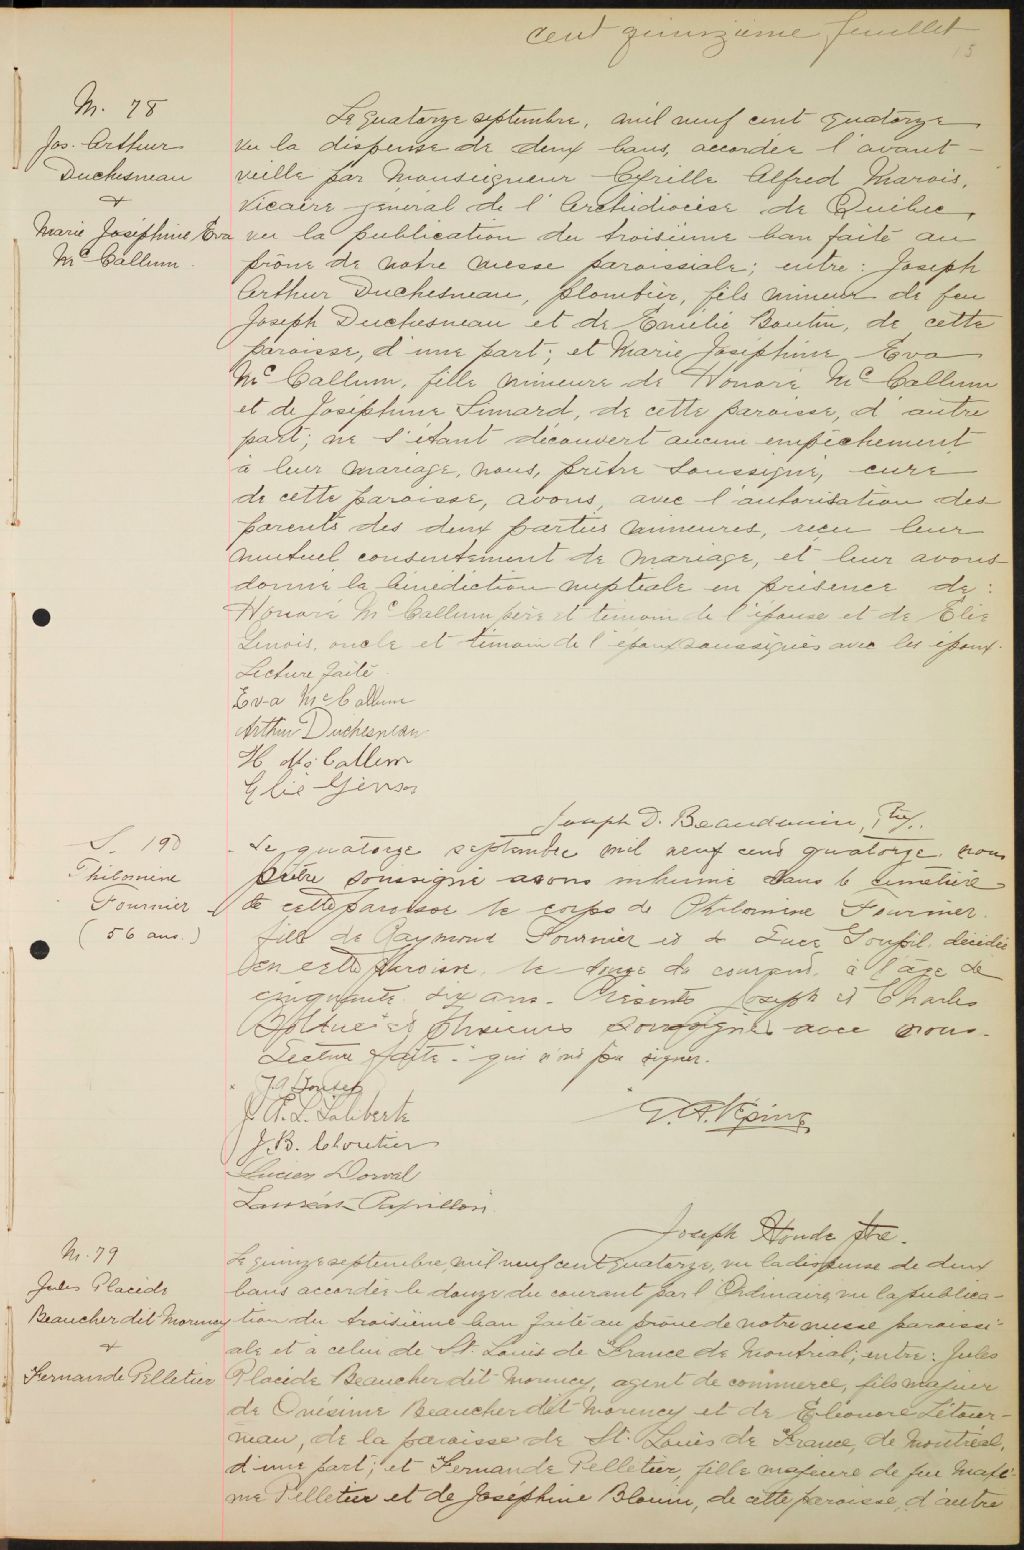 cent quinzième feuillet
M. 78
Jos. Arthur
Duchesneau
&
Marie Joséphine Eva
Mc Callum.
Le quatorze septembre, mil neuf cent quatorze
vu la dispense de deux bans, accordée l'avant-
veille par Monseigneur Cyrille Alfred Marois,
Vicaire général de l'Archidiocèse de Québec,
vu la publication du troisième ban faite au
prône de notre messe paroissiale; entre: Joseph
Arthur Duchesneau, plombier, fils mineur de feu
Joseph Duchesneau et de Emélie Boutin, de cette
paroisse, d'une part; et Marie Joséphine Eva
Mc Callum, fille mineure de Honoré Mc Callum
et de Joséphine Simard, de cette paroisse, d'autre
part; ne s'étant découvert aucun empêchement
à leur mariage, nous, prêtre soussigné, curé
de cette paroisse, avons, avec l'autorisation des
parents des deux parties mineures, reçu leur
mutuel consentement de mariage, et leur avons
donné la bénédiction nuptiale en présence de:
Honoré Mc Callum père et témoin de l'épouse et de Elie
Genois, oncle et témoin de l'époux soussignés avec les époux.
Lecture faite.
Eva McCallum
Arthur Duchesneau
H Mc Callum
Elie Genois
Joseph D. Beaudouin, Ptre.
S. 190
Philomène
Fournier
(56 ans.)
Le quatorze septembre mil neuf cent quatorze, nous
prêtre soussigné avons inhumé dans le cimetière
de cette paroisse le corps de Philomène Fournier
fille de Raymond Fournier et de Luce Goupil, décédée
en cette paroisse, le douze du courant, à l'âge de
cinquante six ans. Présents Joseph et Charles
et plusieurs soussignés avec nous.
Lecture faite. qui n'ont pu signer.
J. A. L. Laliberté
J. B. Cloutier
Lucien Dorval
Lauréat Papillon
G. A. Vépine
Joseph Houde ptre.
M. 79
Jules Placide
Beaucher dit Morency
&
Fernande Pelletier
Le quinze septembre, mil neuf cent quatorze, vu la dispense de deux
bans accordée le douze du courant par l'Ordinaire, vu la publica-
tion du troisième ban faite au prône de notre messe paroissi-
ale et à celui de St. Louis de France de Montréal; entre: Jules
Placide Beaucher dit Morency, agent de commerce, fils majeur
de Onésime Beaucher dit Morency et de Éléonore Létour-
neau, de la paroisse de St. Louis de France, de Montréal,
d'une part; et Fernande Pelletier, fille majeure de feu Maxi-
me Pelletier et de Joséphine Blouin, de cette paroisse, d'autre